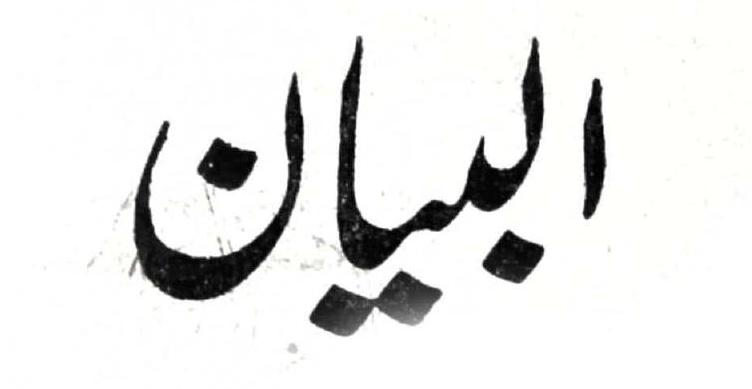 البيان